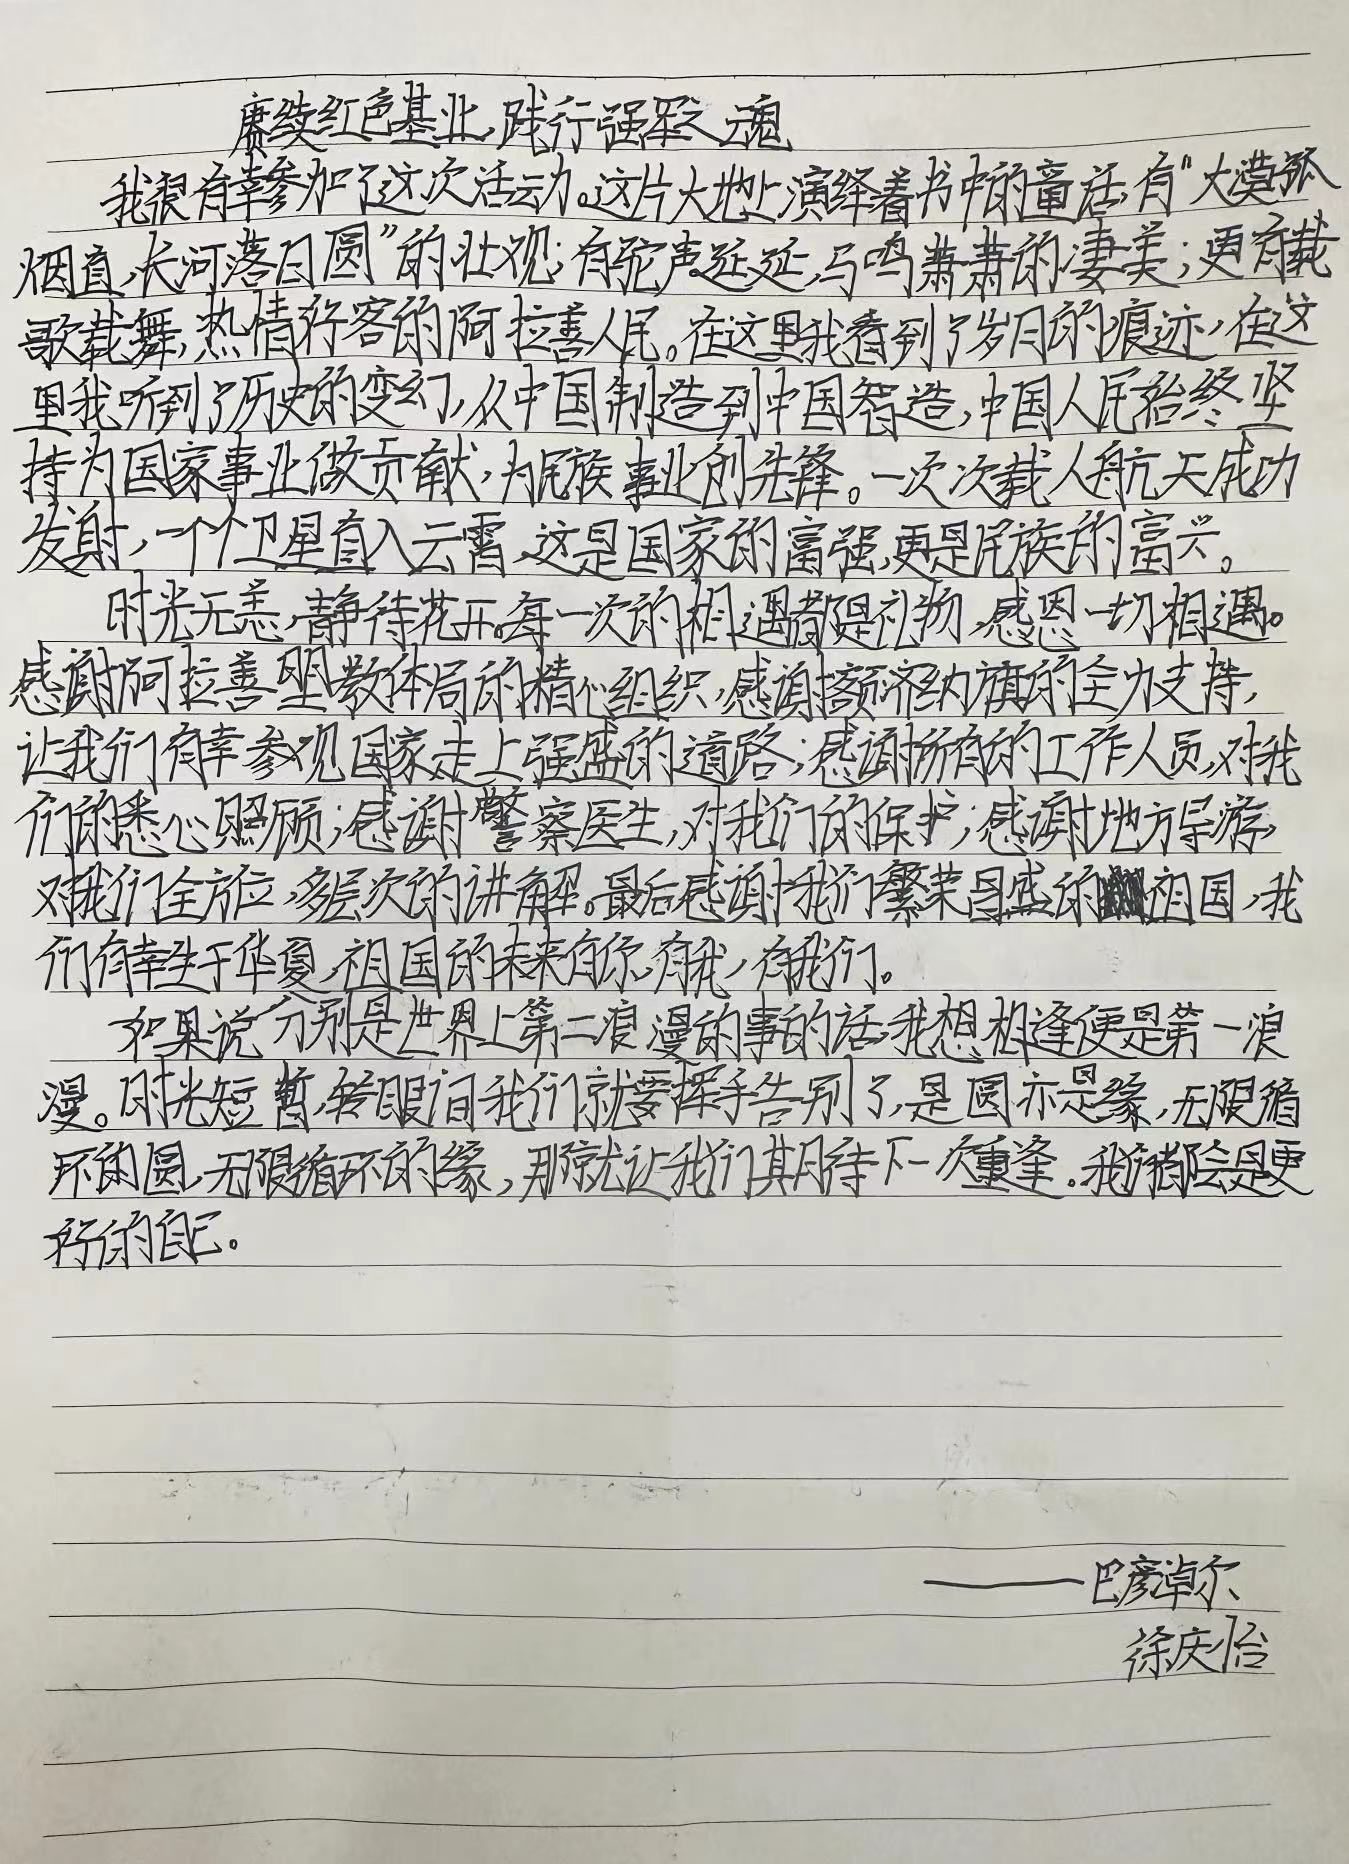 赓续红色基业，践行强军之魂
我很有幸参加了这次活动。这片大地上演绎着书中的童话，有“大漠孤
烟直，长河落日圆”的壮观；有驼声延延，马鸣萧萧的凄美；更有载
歌载舞，热情好客的阿拉善人民。在这里我看到了岁月的痕迹，在这
里我听到了历史的变幻，从中国制造到中国智造，中国人民始终坚
持为国家事业做贡献，为民族事业创先锋。一次次载人航天成功
发射，一个个卫星直入云霄，这是国家的富强，更是民族的富兴。
时光无恙，静待花开。每一次的相遇都是礼物，感恩一切相遇。
感谢阿拉善盟教体局的精心组织，感谢额济纳旗的全力支持，
让我们有幸参观国家走上强盛的道路；感谢所有的工作人员，对我
们的悉心照顾；感谢警察医生，对我们的保护；感谢地方导游，
对我们全方位，多层次的讲解。最后感谢我们繁荣昌盛的祖国，我
们有幸生于华夏，祖国的未来有你，有我，有我们。
如果说分别是世界上第二浪漫的事的话，我想相逢便是第一浪
漫。时光短暂，转眼间我们就要挥手告别了，是圆亦是缘，无限循
环的圆，无限循环的缘，那就让我们期待下一次重逢。我们都会是更
好的自己。
——巴彦淖尔
徐庆怡